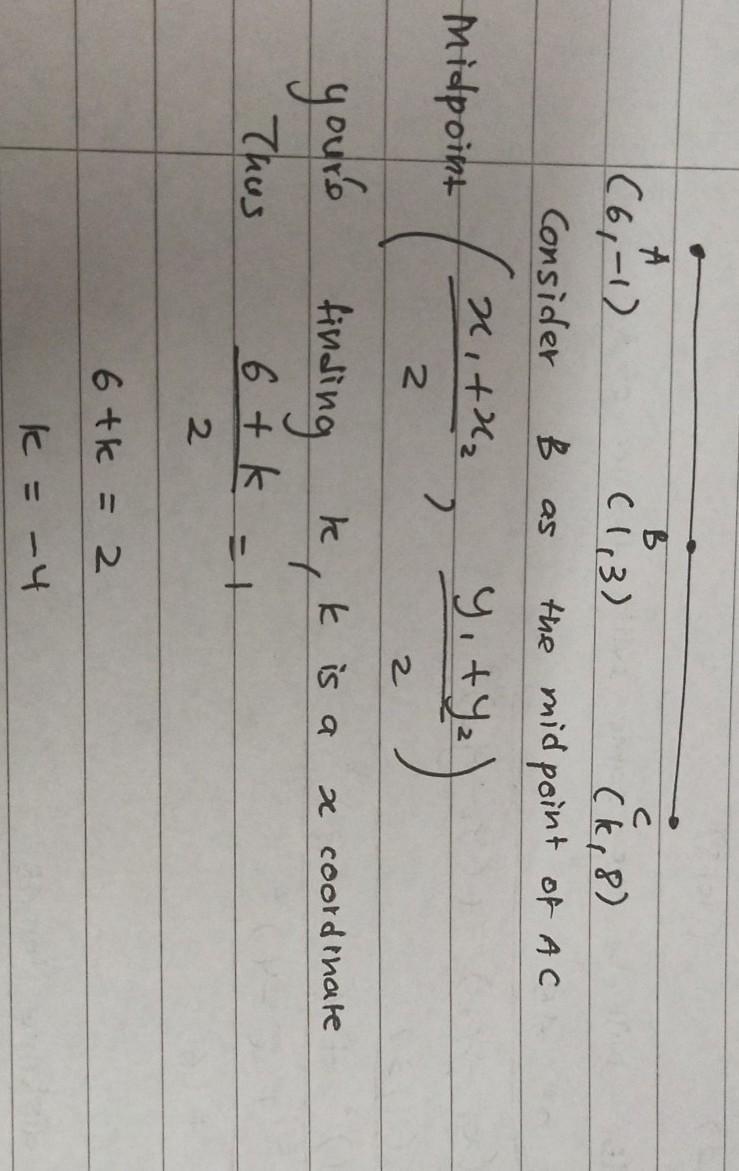 A B C
(6,-1) (1,3) (k,8)
Consider B as the midpoint of AC
Midpoint (x₁+x₂/2 , y₁+y₂/2)
your's finding k, k is a x coordinate
Thus 6+k/2 = 1
6+k = 2
k = -4